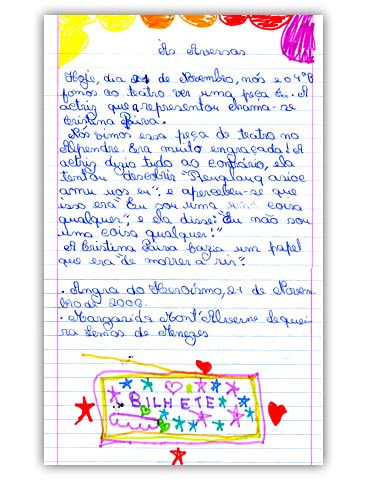 Às Avessas
Hoje, dia 21 de Novembro, nós e o 4ºB
fomos ao teatro ver uma peça É... A
actriz que a representou chama-se
Cristina Paiva.
Nós vimos essa peça de teatro no
Alpendre. Era muito engraçada! A
actriz dizia tudo ao contrário, ela
tentou descobrir "Reuqlauq asioc
amu uos eu", e apercebeu-se que
isso era "Eu sou uma coisa
qualquer", e ela disse: "Eu não sou
uma coisa qualquer!"
A Cristina Paiva fazia um papel
que era "de morrer a rir".
. Angra do Heroísmo, 21 de Novem-
bro de 2000.
. Margarida Mont'Alverne Sequei-
ra Lemos de Menezes
BILHETE